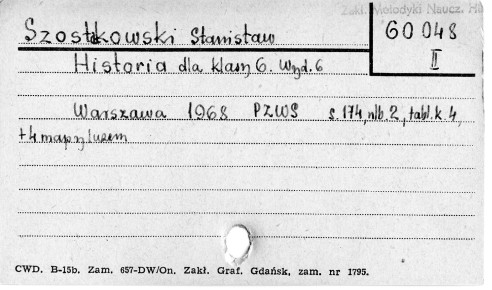 Zakł. Metodyki Naucz. Hi
Szostakowski Stanisław
60 048
II
Historia dla klasy 6. Wyd. 6
Warszawa 1968 PZWS s. 174, nlb. 2, tabl. k. 4,
+ 4 mapy luzem
CWD. B-15b. Zam. 657-DW/On. Zakł. Graf. Gdańsk, zam. nr 1795.